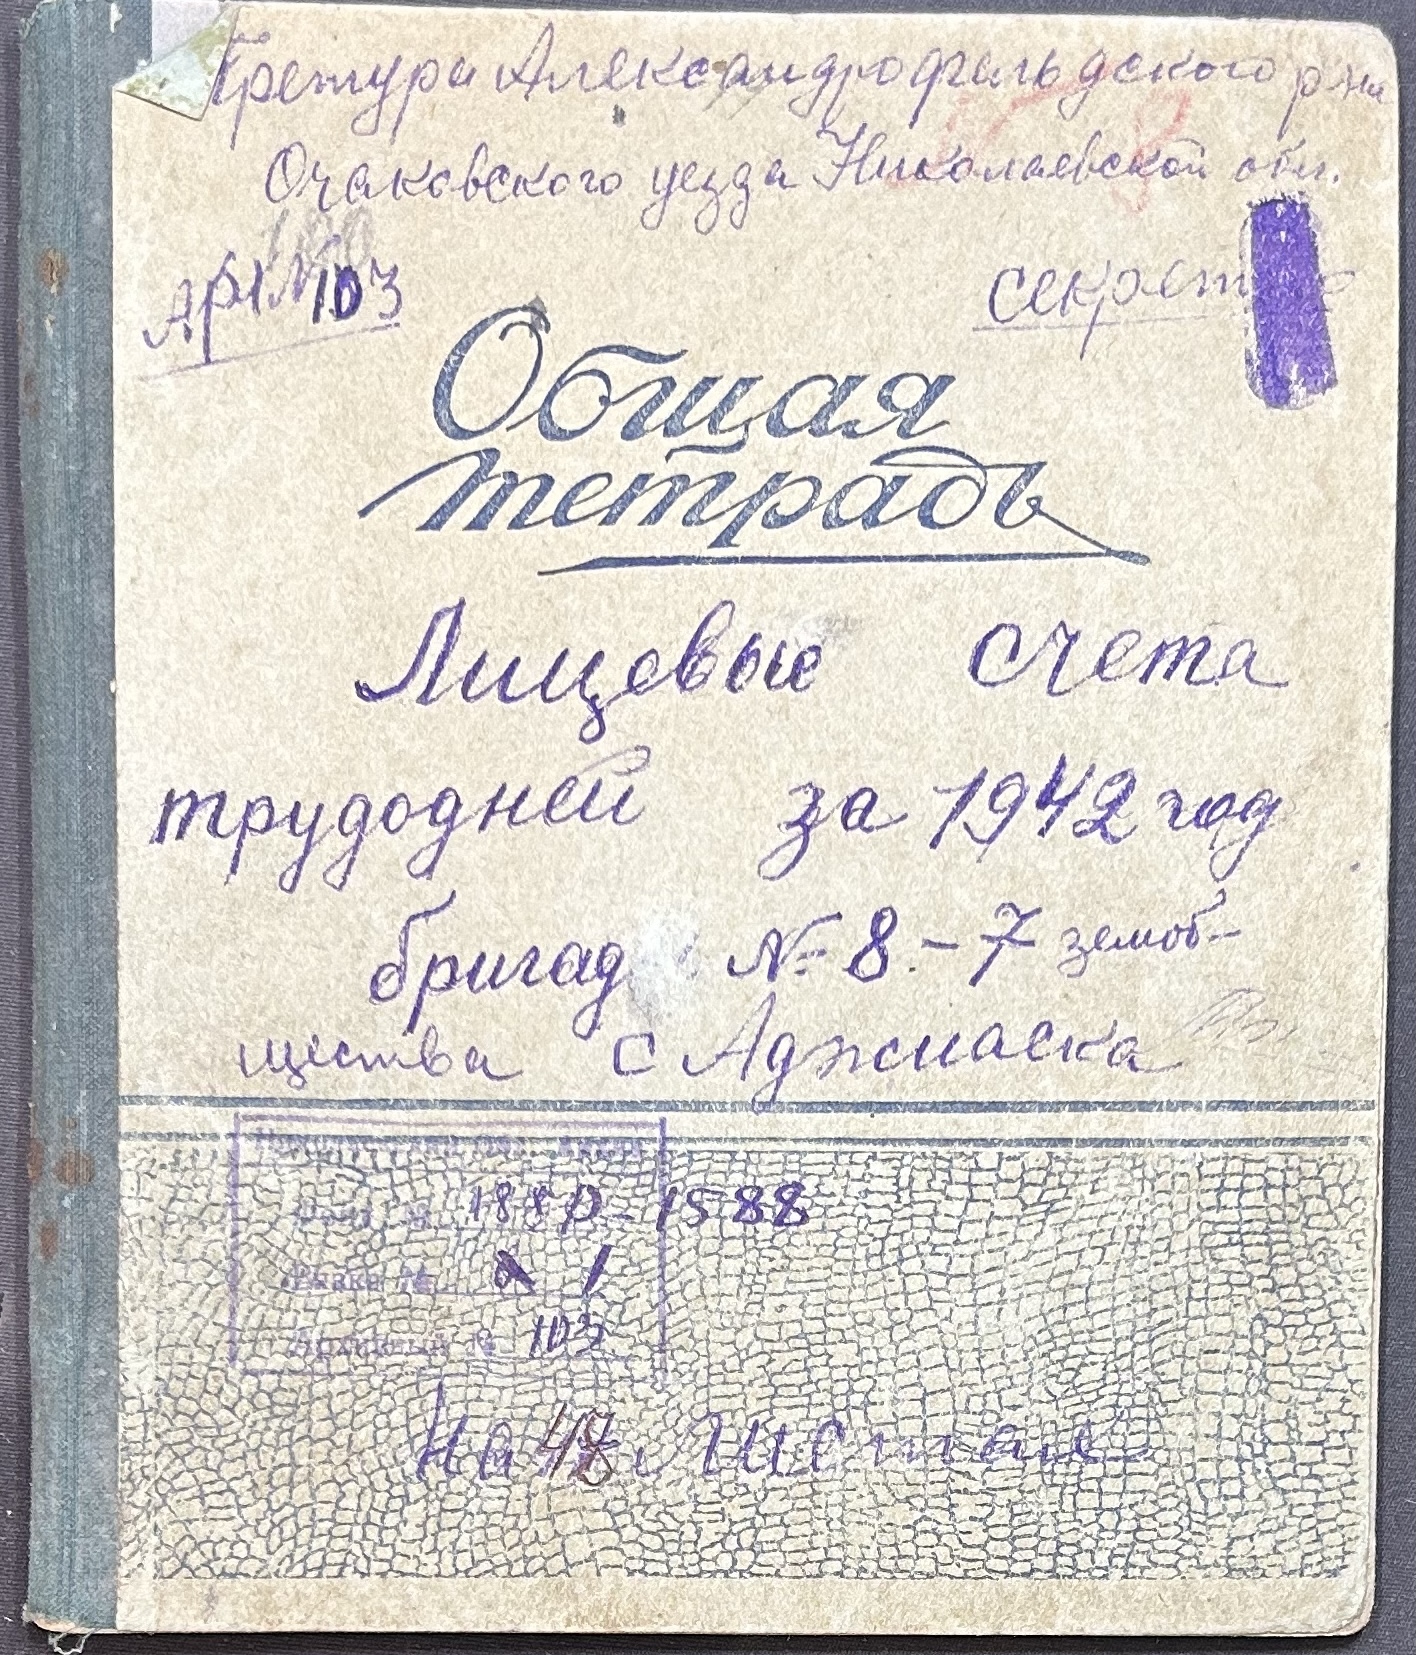 Претура Александрофельдского р-на
Очаковского уезда Николаевской обл.
100
Арх № 103
секретно
Общая
тетрадь
Лицевые счета
трудодней за 1942 год
бригад № 8-7 земоб-
щества с Аджиаска
Р-1588
1
Архивный № 103
На 48 листах